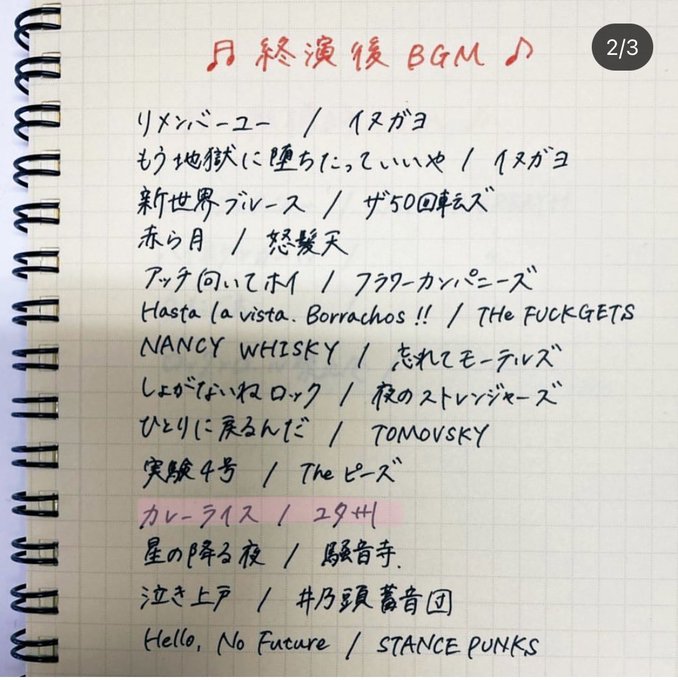 2/3
♫ 終演後 BGM ♪
リメンバーユー / イヌガヨ
もう地獄に堕ちたっていいや / イヌガヨ
新世界ブルース / ザ50回転ズ
赤ら月 / 怒髪天
アッチ向いてホイ / フラワーカンパニーズ
Hasta la vista. Borrachos!! / THe FUCKGETS
NANCY WHISKY / 忘れてモーテルズ
しょがないねロック / 夜のストレンジャーズ
ひとりに戻るんだ / TOMOVSKY
実験4号 / The ピーズ
カレーライス / ユタ州
星の降る夜 / 騒音寺.
泣き上戸 / 井乃頭蓄音団
Hello, No Future / STANCE PUNKS